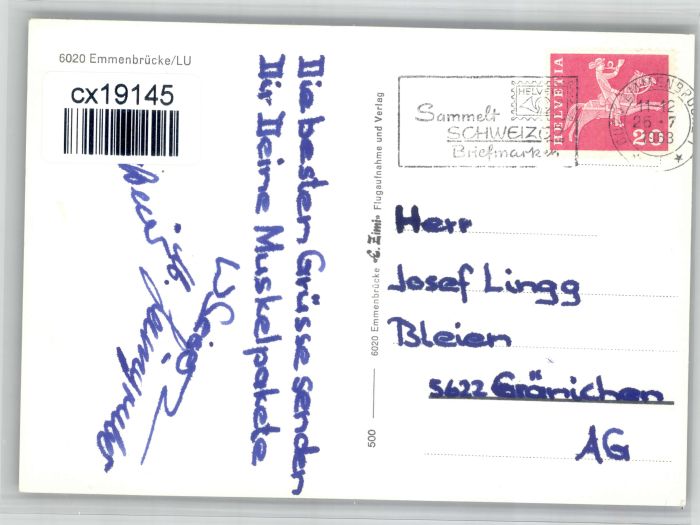 6020 Emmenbrücke/LU
cx19145
Die besten Grüsse senden
Dir Deine Muskelpakete
HELVETIA
20
HELVETIA
Sammelt
SCHWEIZER
Briefmarken
11-12
25.-7
Herr
Josef Lingg
Bleien
5622 Gränichen
AG
500
6020 Emmenbrücke E. Zimi Flugaufnahme und Verlag